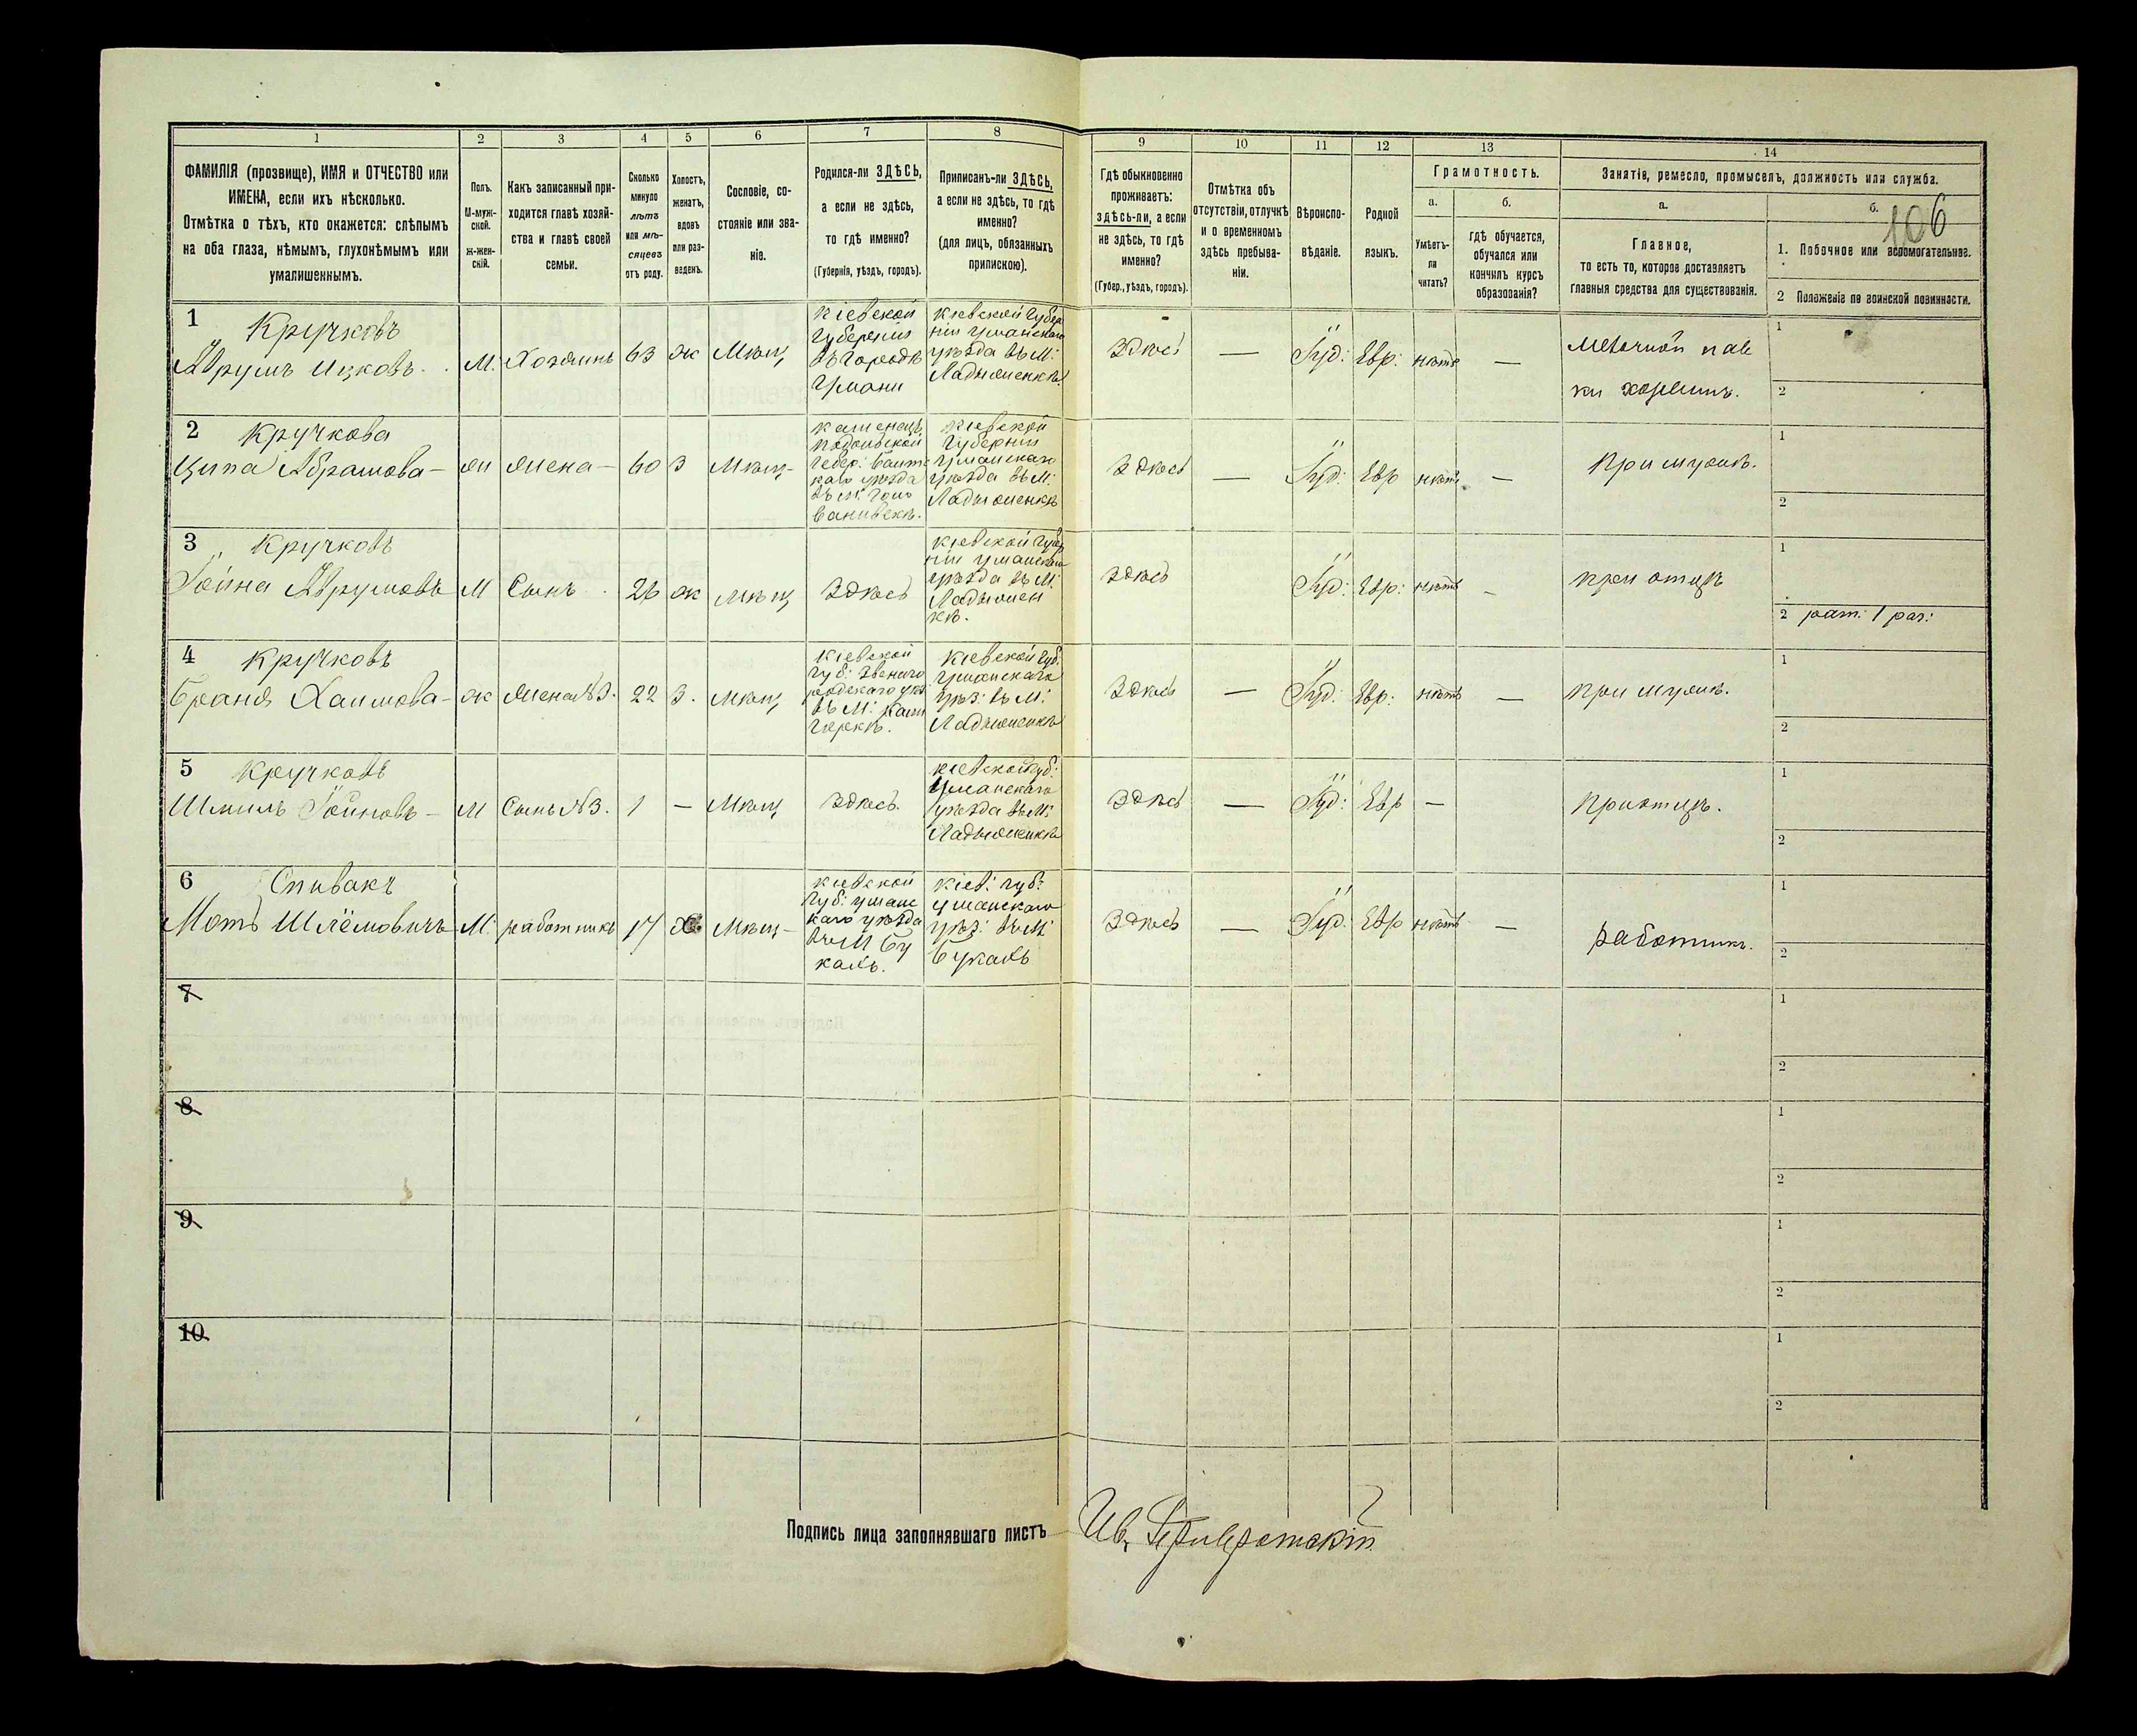 1 2 3 4 5 6 7 8 9 10 11 12 13 14
ФАМИЛІЯ (прозвище), ИМЯ и ОТЧЕСТВО или
ИМЕНА, если ихъ нѣсколько.
Отмѣтка о тѣхъ, кто окажется: слѣпымъ
на оба глаза, нѣмымъ, глухонѣмымъ или
умалишеннымъ.
Полъ.
М-муж-
ской.
ж-жен-
скій.
Какъ записанный при-
ходится главѣ хозяй-
ства и главѣ своей
семьи.
Сколько
минуло
лѣтъ
или мѣ-
сяцевъ
отъ роду.
Холостъ,
женатъ,
вдовъ
или раз-
веденъ.
Сословіе, со-
стояніе или зва-
ніе.
Родился-ли ЗДѢСЬ,
а если не здѣсь,
то гдѣ именно?
(Губернія, уѣздъ, городъ).
Приписанъ-ли ЗДѢСЬ,
а если не здѣсь, то гдѣ
именно?
(для лицъ, обязанныхъ
припискою).
Гдѣ обыкновенно
проживаетъ:
здѣсь-ли, а если
не здѣсь, то гдѣ
именно?
(Губер., уѣздъ, городъ).
Отмѣтка объ
отсутствіи, отлучкѣ
и о временномъ
здѣсь пребыва-
ніи.
Вѣроиспо-
вѣданіе.
Родной
языкъ.
Грамотность.
а.
Умѣетъ-
ли
читать?
б.
гдѣ обучается,
обучался или
кончилъ курсъ
образованія?
Занятіе, ремесло, промыселъ, должность или служба.
а.
Главное,
то есть то, которое доставляетъ
главныя средства для существованія.
б.
106
1. Побочное или вспомогательное.
2 Положеніе по воинской повинности.
1 Кручковъ
Аврумъ Ицковъ
М:
Хозяинъ
63
ж
Мѣщ
Кіевской
Губерніи
въ городѣ
Умани
Кіевской Губер
ніи Уманскаго
уѣзда въ М:
Ладыженкѣ
Здѣсь
—
Іуд:
Евр:
нѣтъ
—
хозяинъ.
1
2
2 Кручкова
Ципа Абрамова —
жена —
60
З
Мѣщ-
Подольской
уѣзда
въ м:
Кіевской
Губерніи
Уманскаго
уѣзда въ М:
Ладыженкѣ
Здѣсь
—
Іуд:
Евр
нѣтъ
—
при мужѣ.
1
2
3 Кручковъ
Іойна Аврумовъ
М
Сынъ
26
ж
мѣщ
Здѣсь
Кіевской Губер
ніи Уманскаго
уѣзда въ М:
Ладыжен
кѣ.
Здѣсь
Іуд:
Евр:
нѣтъ
—
при отцѣ
1
2 рат. 1 раз:
4 Кручковъ
Браня Хаимова —
ж
Жена №3.
22
З.
мѣщ
Кіевской
Губ: Звениго
родскаго уѣз
въ М:
Кіевской Губ:
Уманскаго
уѣз: въ М:
Ладыженкѣ
Здѣсь
—
Іуд:
Евр:
нѣтъ
—
при мужѣ.
1
2
5 Кручковъ
Шмиль Іойновъ —
М
Сынъ №3.
1
—
Мѣщ
Здѣсь.
Кіевской Губ:
Уманскаго
уѣзда въ М:
Ладыженкѣ
Здѣсь
—
Іуд:
Евр
—
при отцѣ.
1
2
6 Спивакъ
Моть Шлёмовичъ
М:
работникъ
17
Х
Мѣщ —
Кіевской
Губ: Уманс
каго уѣзда
въ М Бу
каль.
Кіев: губ:
Уманскаго
уѣз: въ М:
Букаль
Здѣсь
—
Іуд:
Евр
нѣтъ
—
работникъ.
1
2
7
1
2
8
1
2
9
1
2
10
1
2
Подпись лица заполнявшаго листъ